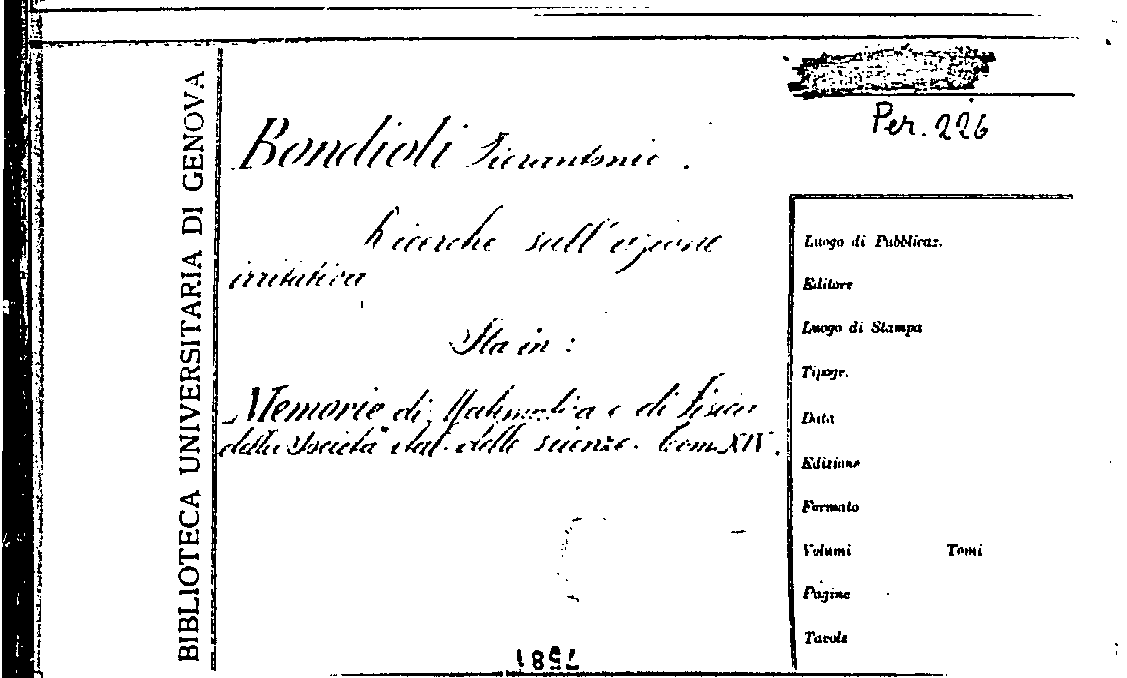 BIBLIOTECA UNIVERSITARIA DI GENOVA
Per. 226
Bondioli Pierantonio.
Ricerche sull'azione
irritativa
Sta in:
Memorie di Matematica e di Fisica
della Società ital. delle scienze. Tom. XIV.
Luogo di Pubblicaz.
Editore
Luogo di Stampa
Tipogr.
Data
Edizione
Formato
Volumi Tomi
Pagine
Tavole